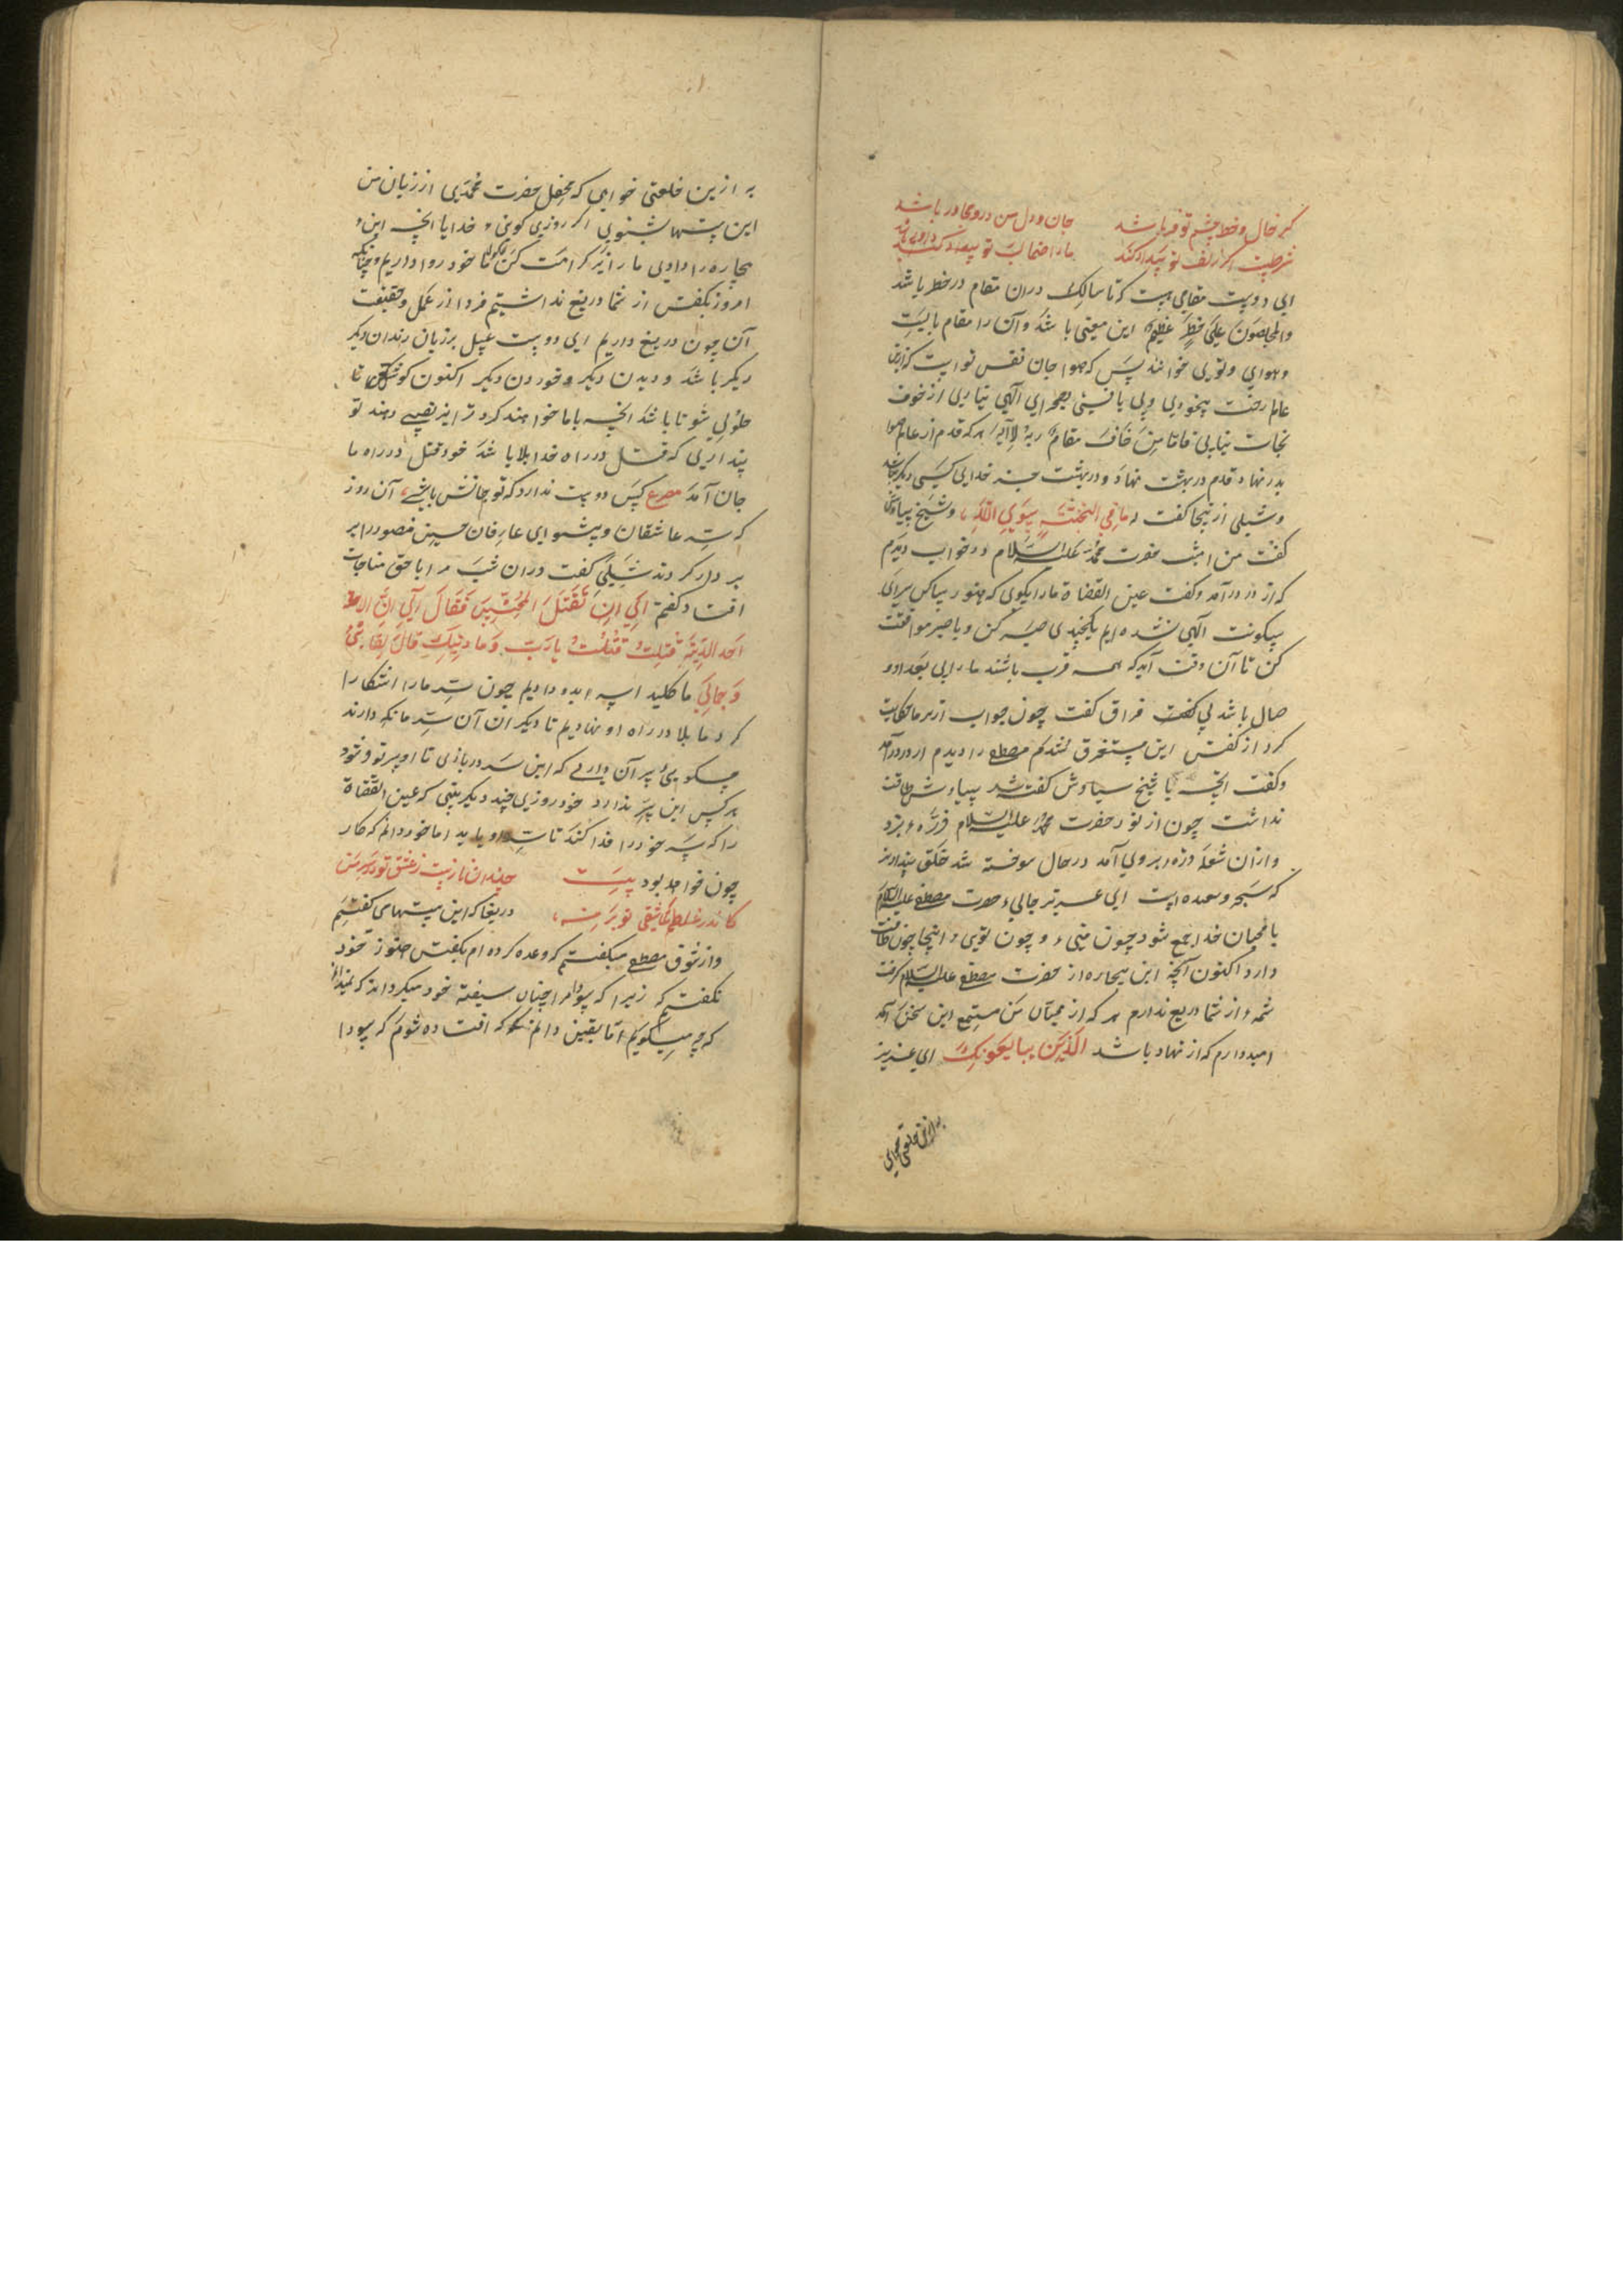 گر خال و خط و چشم تو فر باشد جان و دل من درو مجاور باشد
شرطیست اگر زلف تو بیداد کند ما را ضمان لب تو بیداد کند
ای دوست مقامی هست که تا سالک دران مقام در خطر باشد
والمخلصون علی خطر عظیم این معنی باشد و آن را مقام بایست
و هوای و توی خوانند پس که هوا جان نفس تو است کزین
عالم رخت بیخودی و بی یافتنی بصحرای الهی نیابی از خوف
نجات نیابی فاما من خاف مقام ربه لا آیه هر که قدم از عالم هوا
بدر نهاد قدم در بهشت نهاد و در بهشت جز خدای کسی دیگر نباشد
و شبلی از نیجا گفت ما فی الجنة سوی الله و شیخ سیاوش
گفت من امشب حضرت محمد علیه السلام در خواب دیدم
که از در درآمد و گفت عین القضاة ما را بگوی که هنوز ساکن سرای
سکونت الهی نشده ایم یکچندی صبر کن و با صبر موافقت
کن تا آن وقت آید که همه قرب باشند ما را بی بعد و و
صال باشد بی فراق گفت چون جواب از بر ما حکایت
کرد از گفتش این مستغرق شدم مصطفی را دیدم از در درآمد
و گفت آنچه با شیخ سیاوش گفته شد سیاوش طاقت
نداشت چون از نور حضرت محمد علیه السلام ذره بزد
و ازان شعله ذره بروی آمد در حال سوخته شد خلق پندارند
که سحر و شعبده است ای عزیز جالی حضرت مصطفی علیه السلام
با محبان خدا جمع شود چون منی و چون توی اینجا چون طاقت
دارد اکنون آنچه این بیچاره از حضرت مصطفی علیه السلام گرفت
شمه از شما دریغ ندارم هر که از محبان من مستمع این سخن آید
امیدوارم که از نهاد باشد الذین یبایعونک ای عزیز
به ازین خلعتی خواهی
به ازین خلعتی خواهی که محفل حضرت محمدی از زبان من
این بیتها شنوی اگر روزی گوئی خدایا آنچه این
بیچاره را دادی ما را نیز کرامت کن خود روا داریم و چنانکه
امروز بگفتن از شما دریغ نداشتیم فردا از عمل و حقیقت
آن چون دریغ داریم ای دوست عسل بر زبان راندن دیگر
دیگر باشد و دیدن دیگر و خوردن دیگر اکنون کوشش کن تا
حلولی شو تا باشد آنچه با ما خواهند کرد ترا نیز نصیبی دهند تو
پنداری که قتل در راه خدا بلا باشد خود قتل در راه ما
جان آمد مصرع کس دوست ندارد که تو جانش باشی آن روز
که سر عاشقان و پیشوای عارفان حسین منصور را بر
بر دار کردند شبلی گفت دران شب مرا با حق مناجات
افتاد گفتم الی ان تقتل المحبین فقال الی ان
اجد الدیة قتلت قتلت یا رب و ما دیتک قال لقائی
و جمالی ما کلید او دادیم چون سر ما را آشکارا
کرد ما بلا در راه او نهادیم تا دیگران آن سر ما نگه دارند
چگوئی سر آن داری که این سر دربازی تا او سر تو شود
هر کس این سر ندارد خود روزی چند دیگر بینی که عین القضاة
را که سر خود را فدا کند تا سر او یابد اما خود دانم که کار
چون خواهد بود بیت چندان ناز است ز عشق تو در سر من
کاندر غلطم که عاشقی تو بر من دریغا که این بیتها می گفتم
و از شوق مصطفی میگفتم که وعده کرده ام بگفتن هنوز خود
نگفتم زیرا که سودا مرا چنان سیفته خود میگرداند که نمیدانم
که چه میگویم اما یقین دانم که افتاده شوم که سودا